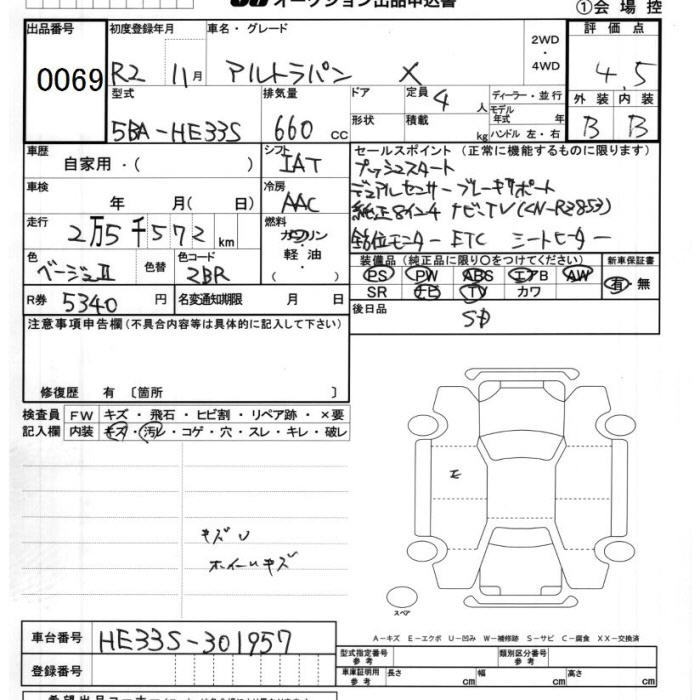 オークション出品申込書
①会場控
出品番号 初度登録年月 車名・グレード 2WD・4WD 評価点
0069 R2 11月 アルトラパン X 4.5
型式 排気量 ドア 定員 4人 ディーラー・並行 外装 内装
モデル年式 年
5BA-HE33S 660 cc 形状 積載 kg ハンドル 左・右 B B
車歴 自家用・( ) シフト IAT セールスポイント (正常に機能するものに限ります)
プッシュスタート
車検 年 月( 日) 冷房 AAC デュアルセンサーブレーキサポート
純正8インチ ナビ.TV
走行 2万5千572km 燃料 ガソリン 軽油・( ) モニター ETC シートヒーター
色 ベージュⅡ 色替 色コード 2BR 装備品 (純正品に限り○をつけてください) 新車保証書
PS PW ABS エアB AW 有・無
SR TV カワ
R券 5340円 名変通知期限 月 日 後日品
注意事項申告欄(不具合内容等は具体的に記入して下さい)
修復歴 有 〔箇所 〕
検査員 FW キズ・飛石・ヒビ割・リペア跡・×要
記入欄 内装 キズ・汚レ・コゲ・穴・スレ・キレ・破レ
キズU
ホイールキズ
スペア
A-キズ E-エクボ U-凹み W-補修跡 S-サビ C-腐食 XX-交換済
車台番号 HE33S-301957
型式指定番号 参考 類別区分番号 参考
登録番号 車庫証明用 参考 長さ cm 幅 cm 高さ cm